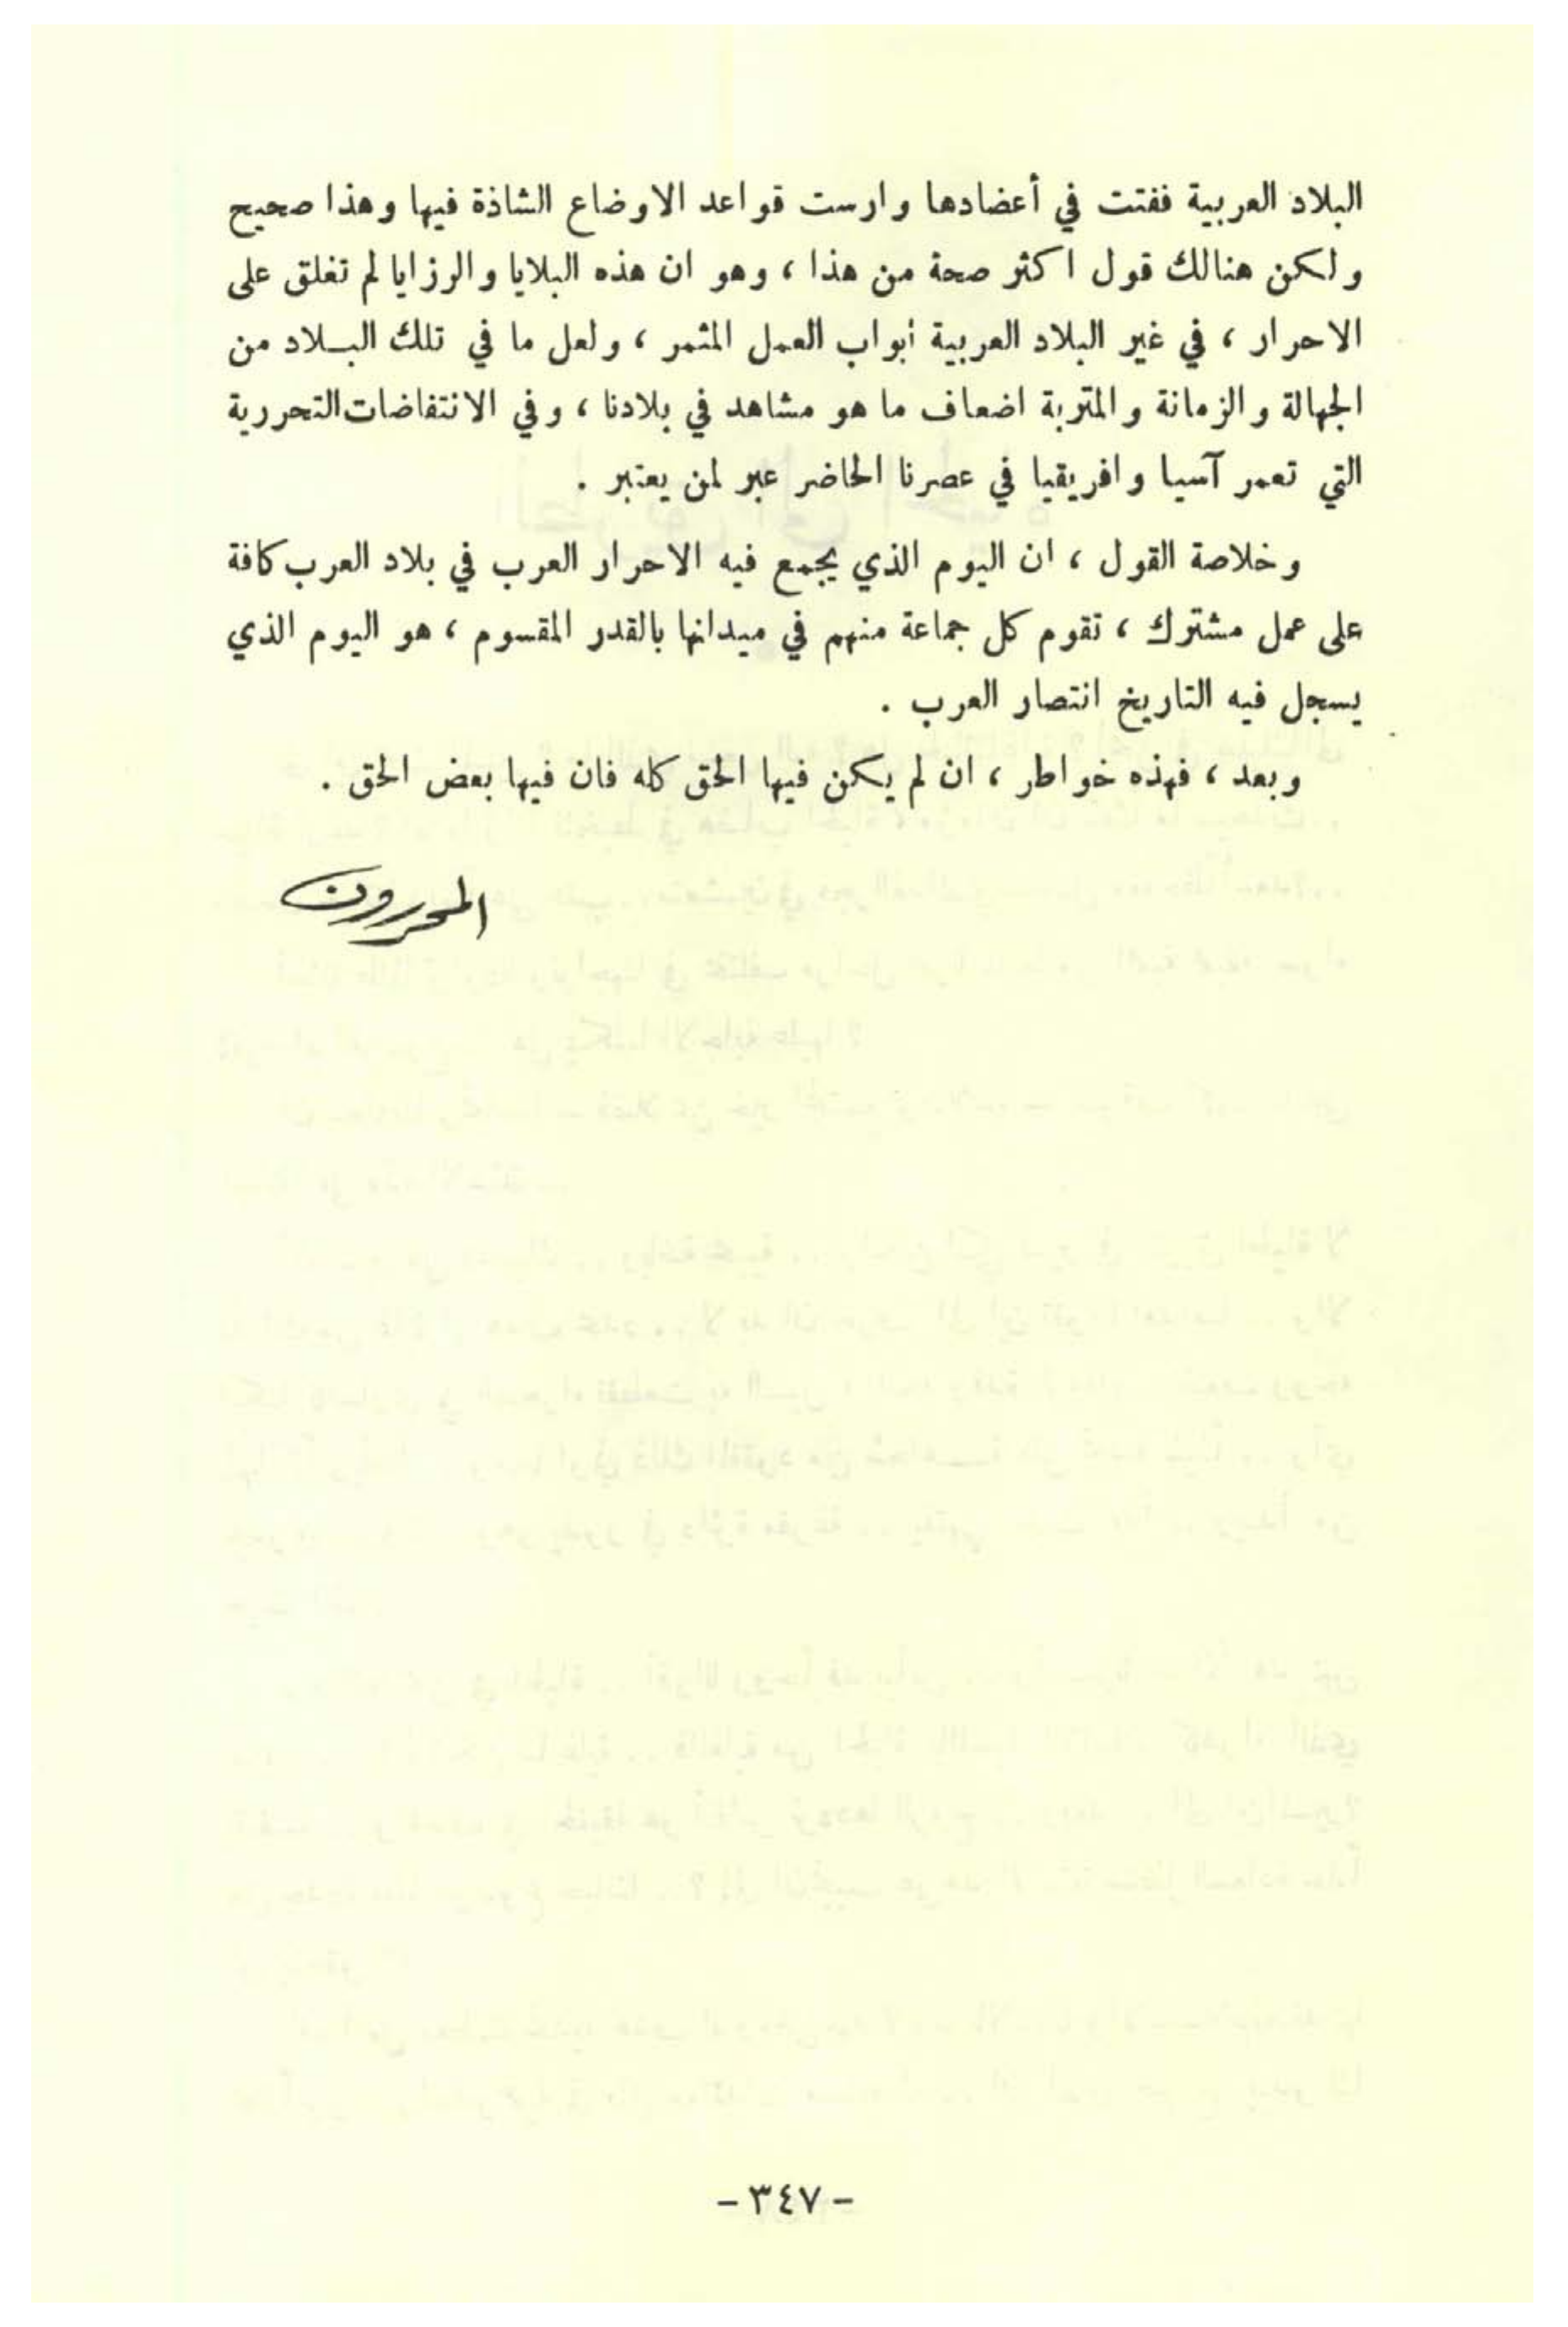 البلاد العربية ففتت في أعضادها وارست قواعد الاوضاع الشاذة فيها وهذا صحيح
ولكن هنالك قول اكثر صحة من هذا ، وهو ان هذه البلايا والرزايا لم تغلق على
الاحرار ، في غير البلاد العربية أبواب العمل المثمر ، ولعل ما في تلك البـلاد من
الجهالة والزمانة والمتربة اضعاف ما هو مشاهد في بلادنا ، وفي الانتفاضات التحررية
التي تعمر آسيا وافريقيا في عصرنا الحاضر عبر لمن يعتبر .
وخلاصة القول ، ان اليوم الذي يجمع فيه الاحرار العرب في بلاد العرب كافة
على عمل مشترك ، تقوم كل جماعة منهم في ميدانها بالقدر المقسوم ، هو اليوم الذي
يسجل فيه التاريخ انتصار العرب .
وبعد ، فهذه خواطر ، ان لم يكن فيها الحق كله فان فيها بعض الحق .
المحررون
- ٣٤٧ -